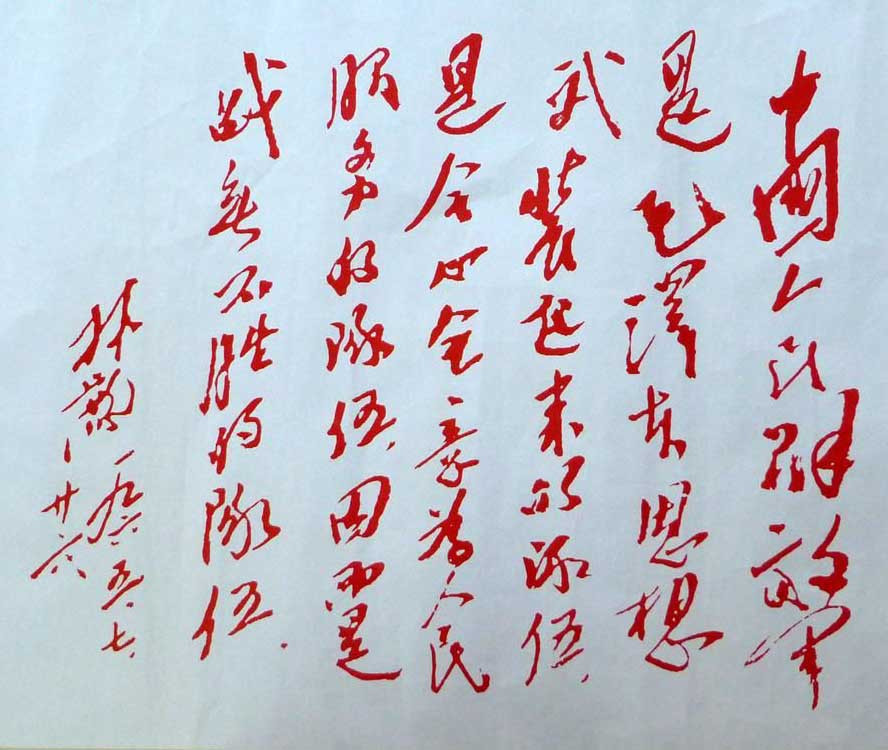 中國人民解放軍
是毛澤东思想
武装起来的隊伍，
是全心全意为人民
服务的隊伍，因而是
战無不胜的隊伍．
林彪
一九六五．七．
廿六